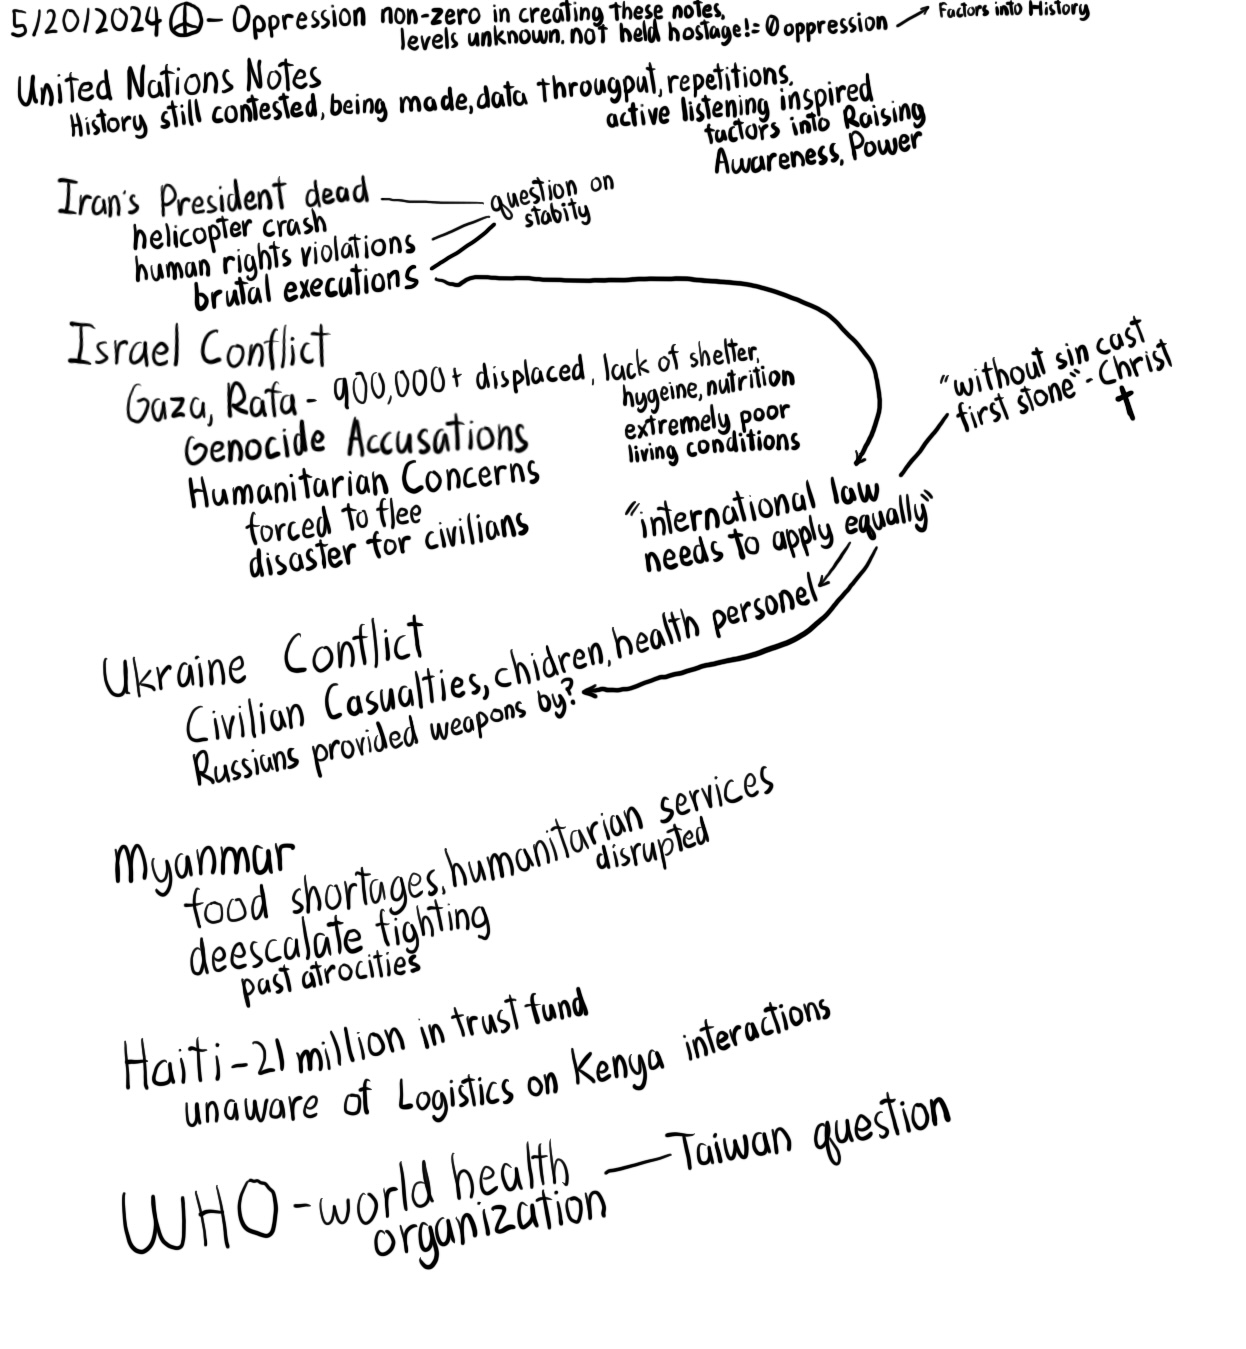 5/20/2024 ☮ - Oppression non-zero in creating these notes,
levels unknown. not held hostage != 0 oppression → Factors into History
United Nations Notes
History still contested, being made, data througput, repetitions.
active listening inspired
factors into Raising
Awareness, Power
Iran's President dead
question on
stabity
helicopter crash
human rights violations
brutal executions
Israel Conflict
Gaza, Rafa - 900,000+ displaced, lack of shelter,
hygeine, nutrition
extremely poor
living conditions
Genocide Accusations
Humanitarian Concerns
forced to flee
disaster for civilians
"without sin cast
first stone" - Christ
✝
"international law
needs to apply equally"
Ukraine Conflict
Civilian Casualties, chidren, health personel
Russians provided weapons by?
Myanmar
food shortages, humanitarian services
disrupted
deescalate fighting
past atrocities
Haiti - 21 million in trust fund
unaware of Logistics on Kenya interactions
WHO - world health
organization
Taiwan question